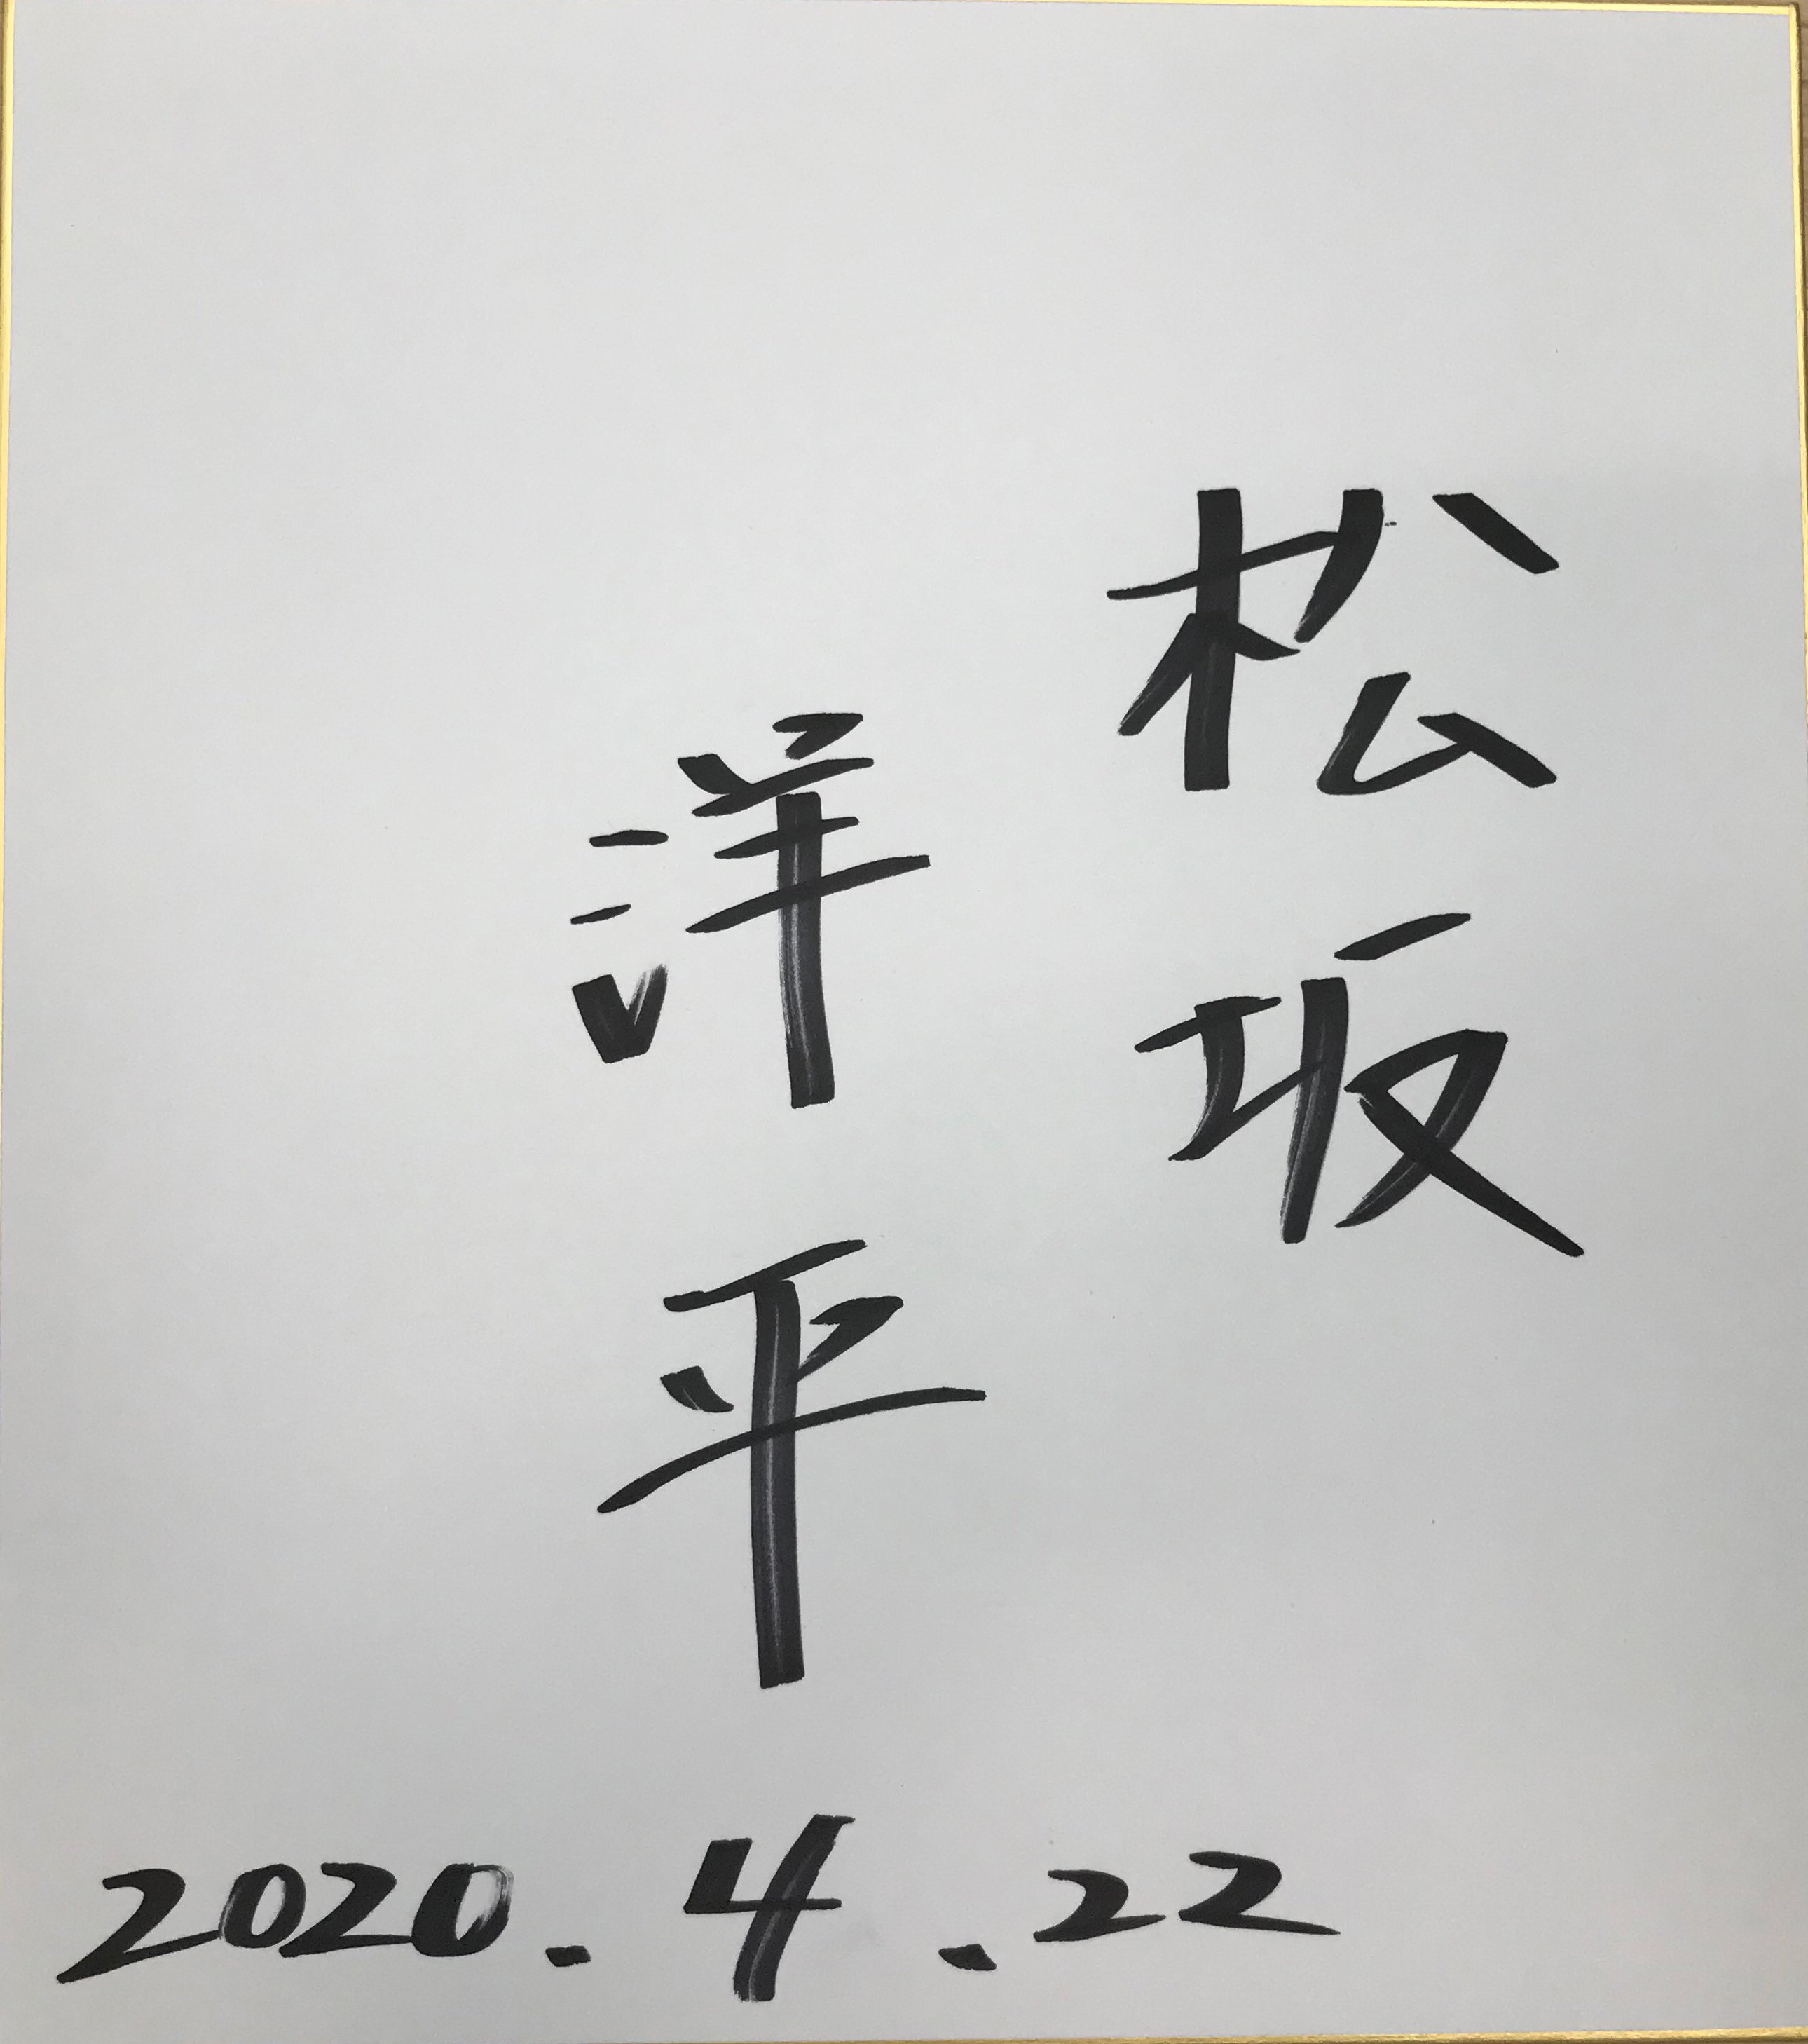 松坂
洋平
2020.4.22